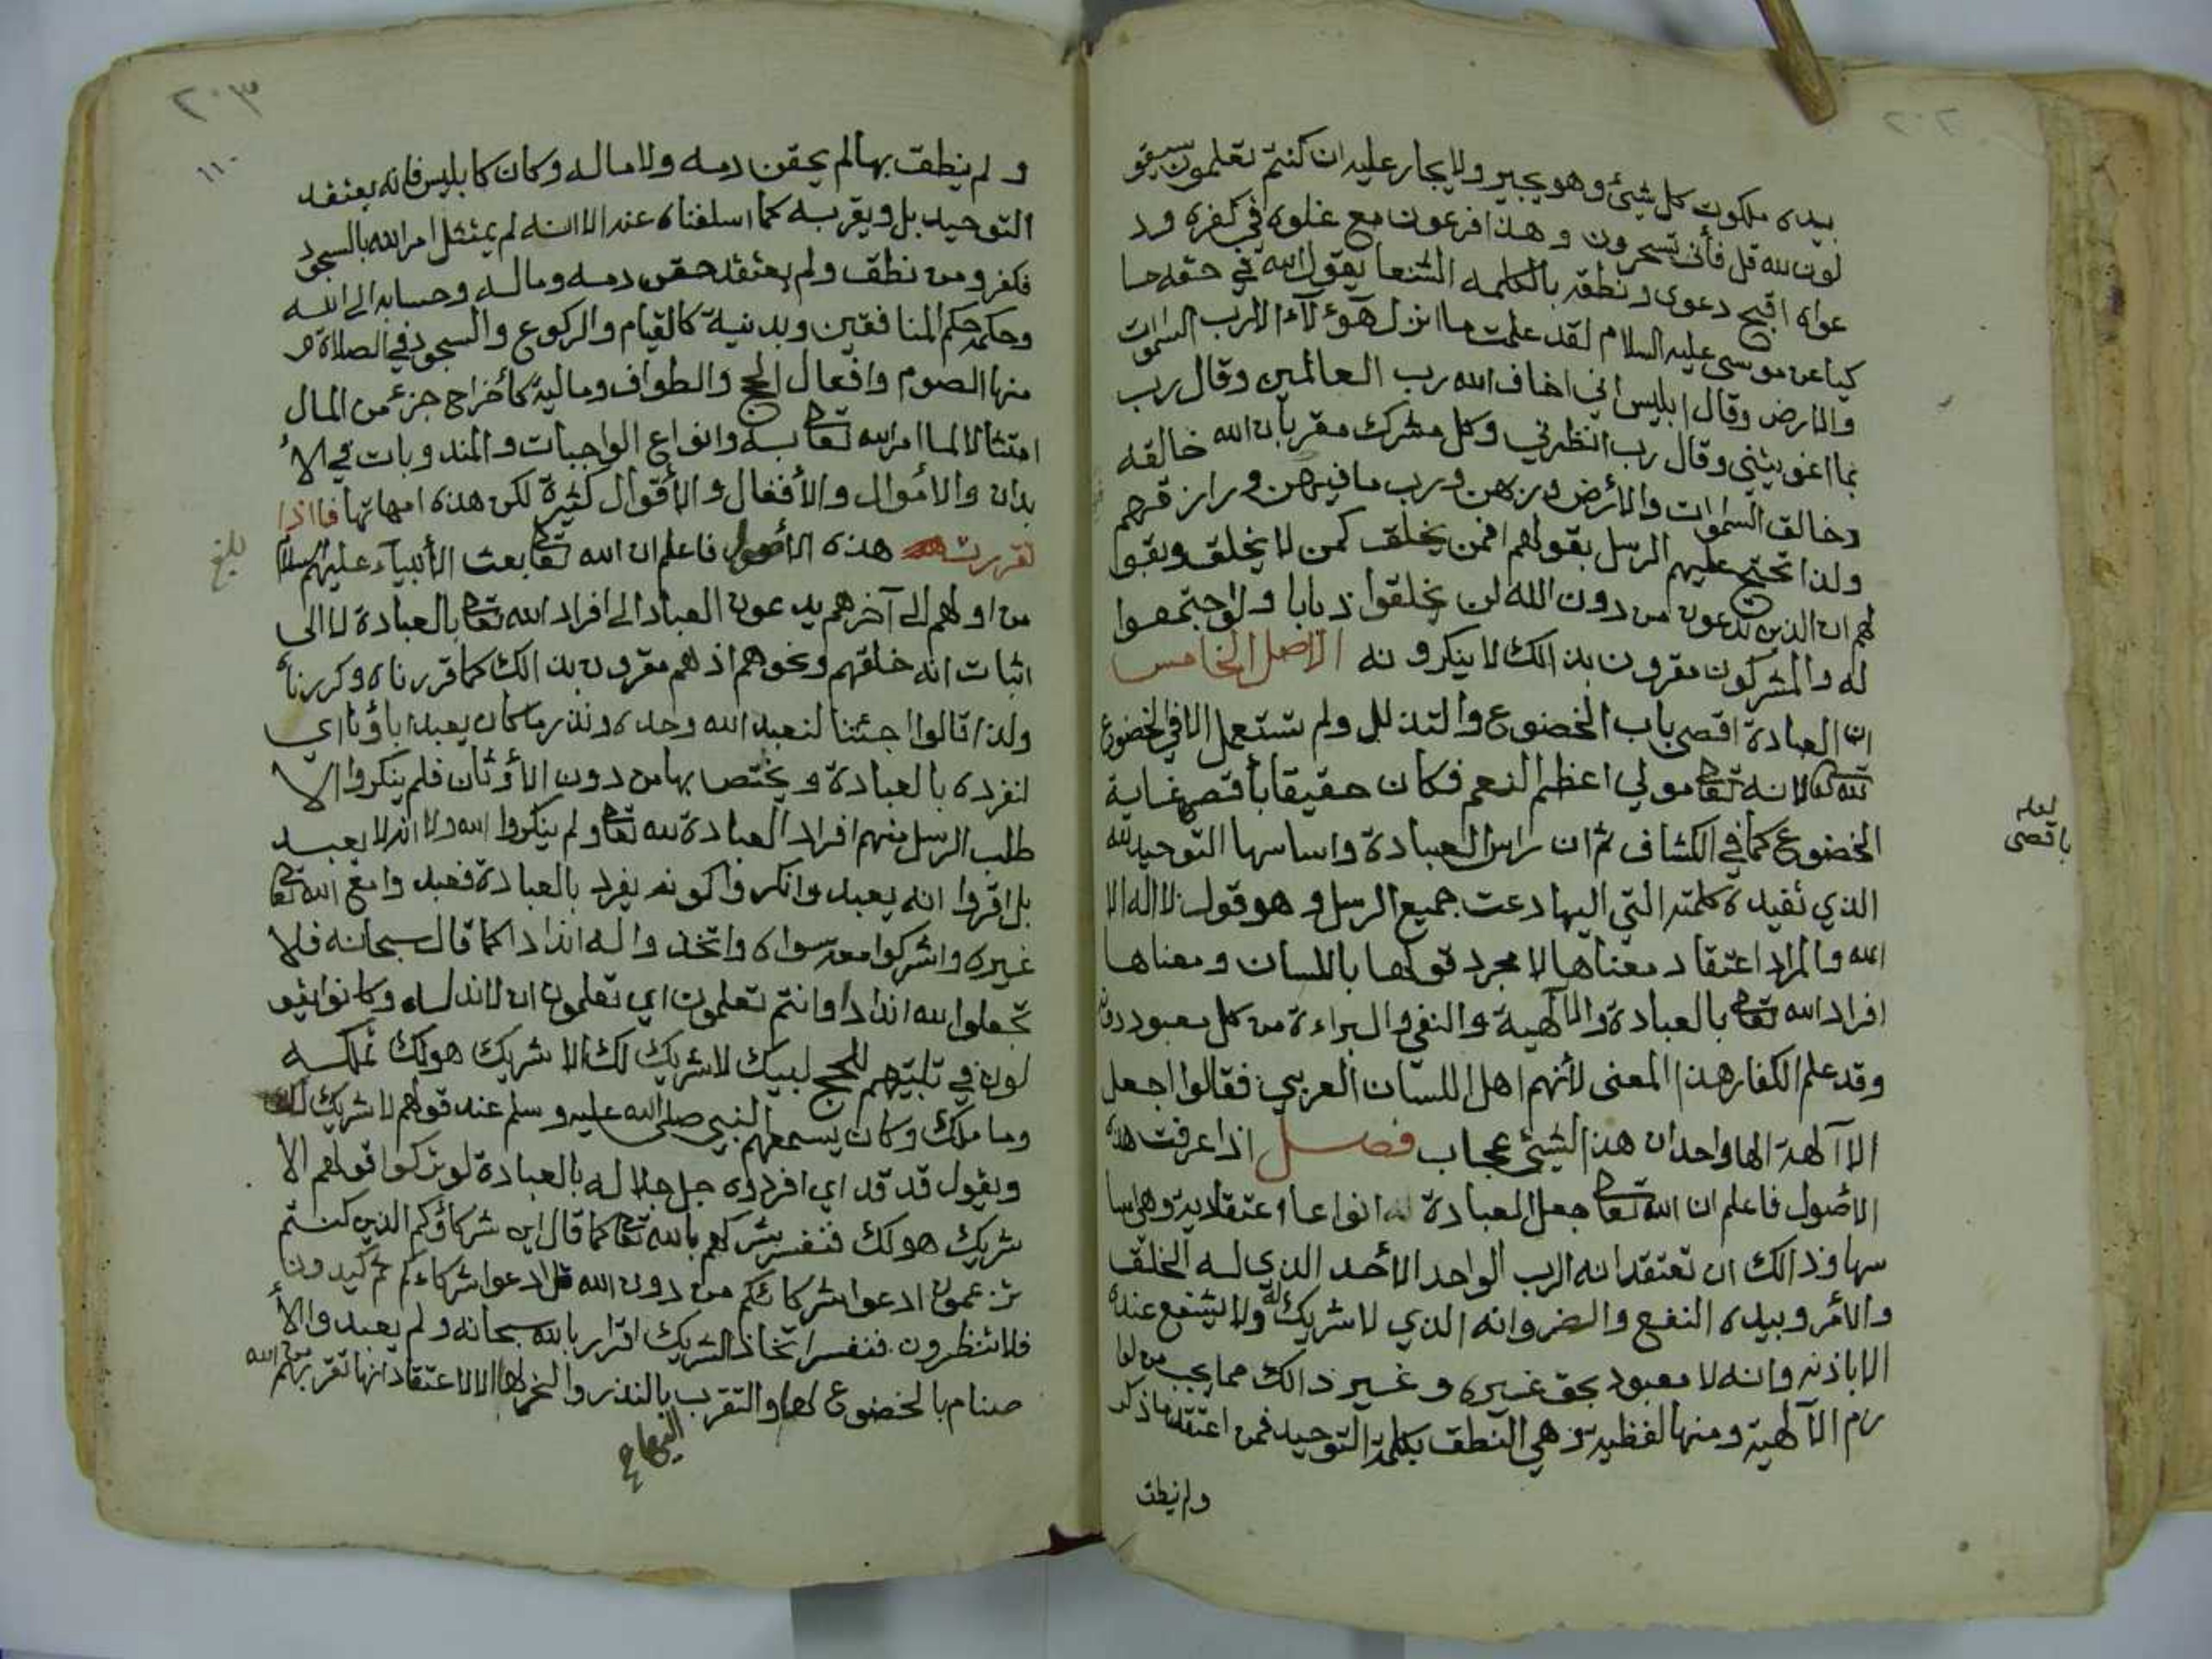 ٢٠٢
بيده ملكوت كل شيئ وهو يجير ولا يجار عليه ان كنتم تعلمون سيقو
لون لله قل فأنى تسحرون وهذا فرعون مع غلوه في كفره ود
عواه اقبح دعوى ونطقه بالكلمه الشنعا يقول الله في حقه حا
كيا عن موسى عليه السلام لقد علمت ما انزل هؤلاء الا رب السموات
والارض وقال ابليس اني اخاف الله رب العالمين وقال رب
بما اغويتني وقال رب انظرني وكل مشرك مقر بان الله خالقه
وخالق السموات والأرض وربهن ورب ما فيهن ورازقهم
ولذا تحتج عليهم الرسل بقولهم افمن يخلق كمن لا يخلق وبقوا
لهم ان الذين تدعون من دون الله لن يخلقوا ذبابا ولو اجتمعوا
له والمشركون مقرون بذالك لا ينكرونه الاصل الخامس
ان العبادة اقصى باب الخضوع والتذلل ولم تستعمل الا في الخضوع
لله لانه تعالى مولي اعظم النعم فكان حقيقا بأقصى غاية
الخضوع كما في الكشاف ثم ان راس العبادة واساسها التوحيد لله
الذي تفيده كلمته التي اليها دعت جميع الرسل وهو قول لا اله الا
الله والمراد اعتقاد معناها لا مجرد قولها باللسان ومعناها
افراد الله تعالى بالعبادة والالهية والنفي والبراءة من كل معبود دونه
وقد علم الكفار هذا المعنى لأنهم اهل اللسان العربي فقالوا اجعل
الاآلهة الها واحدا ان هذا لشيئ عجاب فصل اذا عرفت هذه
الاصول فاعلم ان الله تعالى جعل العبادة له انواعا اعتقلادية وهي اسا
سها وذالك ان تعتقد انه الرب الواحد الأحد الذي له الخلق
والأمر وبيده النفع والضر وانه الذي لا شريك له ولا يشفع عنده
الا باذنه وانه لا معبود بحق غيره وغير ذالك مما يجب من لوا
زم الالهية ومنها لفظية وهي النطق بكلمة التوحيد فمن اعتقد ما ذكر
ولم نطق
لعله
باقصى
٢٠٣
١١٠
ولم ينطق بها لم يحقن دمه ولا ماله وكان كابليس فانه يعتقد
التوحيد بل ويقر به كما اسلفناه عنه الا انه لم يمتثل امر الله بالسجود
فكفر ومن نطق ولم يعتقد حقن دمه وماله وحسابه الى الله
وحكمه حكم المنافقين وبدنية كالقيام والركوع والسجود في الصلاة و
منها الصوم وافعال الحج والطواف ومالية كأخراج جزء من المال
امتثالا لما امر الله تعالى به وانواع الواجبات والمندوبات في الأ
بدان والأموال والأفعال والأقوال كثيرة لكن هذه امهاتها فااذا
تقررت هذه الأصول فاعلم ان الله تعالى بعث الأنبياء عليهم السلام
من اولهم الى آخرهم يدعون العباد الى افراد الله تعالى بالعبادة لا الى
اثبات انه خلقهم ونحوهم اذ هم مقرون بذالك كما قررناه وكررناه
ولذا قالوا اجئتنا لنعبد الله وحده ونذر ما كان يعبد اباؤنا اي
لنفرده بالعبادة ويختص بها من دون الأوثان فلم ينكروا الا
طلب الرسل منهم افراد العبادة لله تعالى ولم ينكروا الله ولا انه لا يعبد
بل اقروا انه يعبد وانكروا كونه يفرد بالعبادة فعبدوا مع الله تعالى
غيره واشركوا معه سواه واتخذوا له اندادا كما قال سبحانه فلا
تجعلوا لله اندادا وانتم تعلمون اي تعلمون ان لا ند له وكانوا يقو
لون في تلبيتهم للحج لبيك لا شريك لك الا شريك هو لك تملكه
وما ملك وكان يسمعهم النبي صلى الله عليه وسلم عند قولهم لا شريك لك
ويقول قد قد اي افردوه جل جلاله بالعبادة لو تركوا قولهم الا
شريك هو لك فنفس شركهم بالله تعالى كما قال اين شركاؤكم الذين كنتم
تزعمون ادعوا شركائكم من دون الله قل ادعوا شركاءكم ثم كيدونا
فلا تنظرون فنفس اتخاذ الشريك اقرار بالله سبحانه ولم يعبدوا الأ
صنام بالخضوع لها والتقرب بالنذر والنحر لها الا لاعتقاد انها تقربهم من الله
بلغ